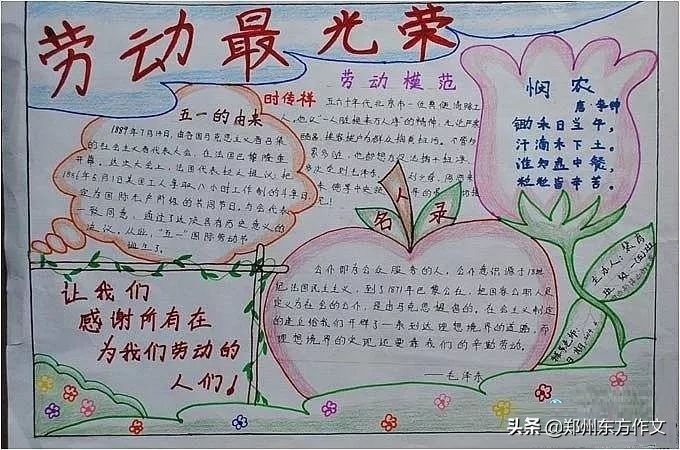 劳动最光荣
五一的由来
1889年7月14日，由各国马克思主义者召集
的社会主义者代表大会，在法国巴黎隆重
开幕。这次大会上，法国代表拉人提议：把
1886年5月1日美国工人争取八小时工作制的斗争日，
定为国际无产阶级的共同节日。与会代表
一致同意，通过了这项具有历史意义的
决议。从此，"五一"国际劳动节
诞生了。
劳动模范
时传祥
五六十年代北京市一位典便清除工
人，他以"一人脏换来万人净"的精神，无论严寒
悯农
唐·李绅
锄禾日当午，
汗滴禾下土。
谁知盘中餐，
粒粒皆辛苦。
名人录
公仆即为公众服务的人，公仆意识源于18世
纪法国民主主义，到了1871年巴黎公社，把国家公职人员
定义为社会的公仆，是由马克思提出的，在社会主义制度
的建立给我们开辟了一条到达理想境界的道路，而
理想境界的实现还要靠我们的辛勤劳动。
——毛泽东
让我们
感谢所有在
为我们劳动的
人们！
主办人：
班级：
日期：
头条 @郑州东方作文